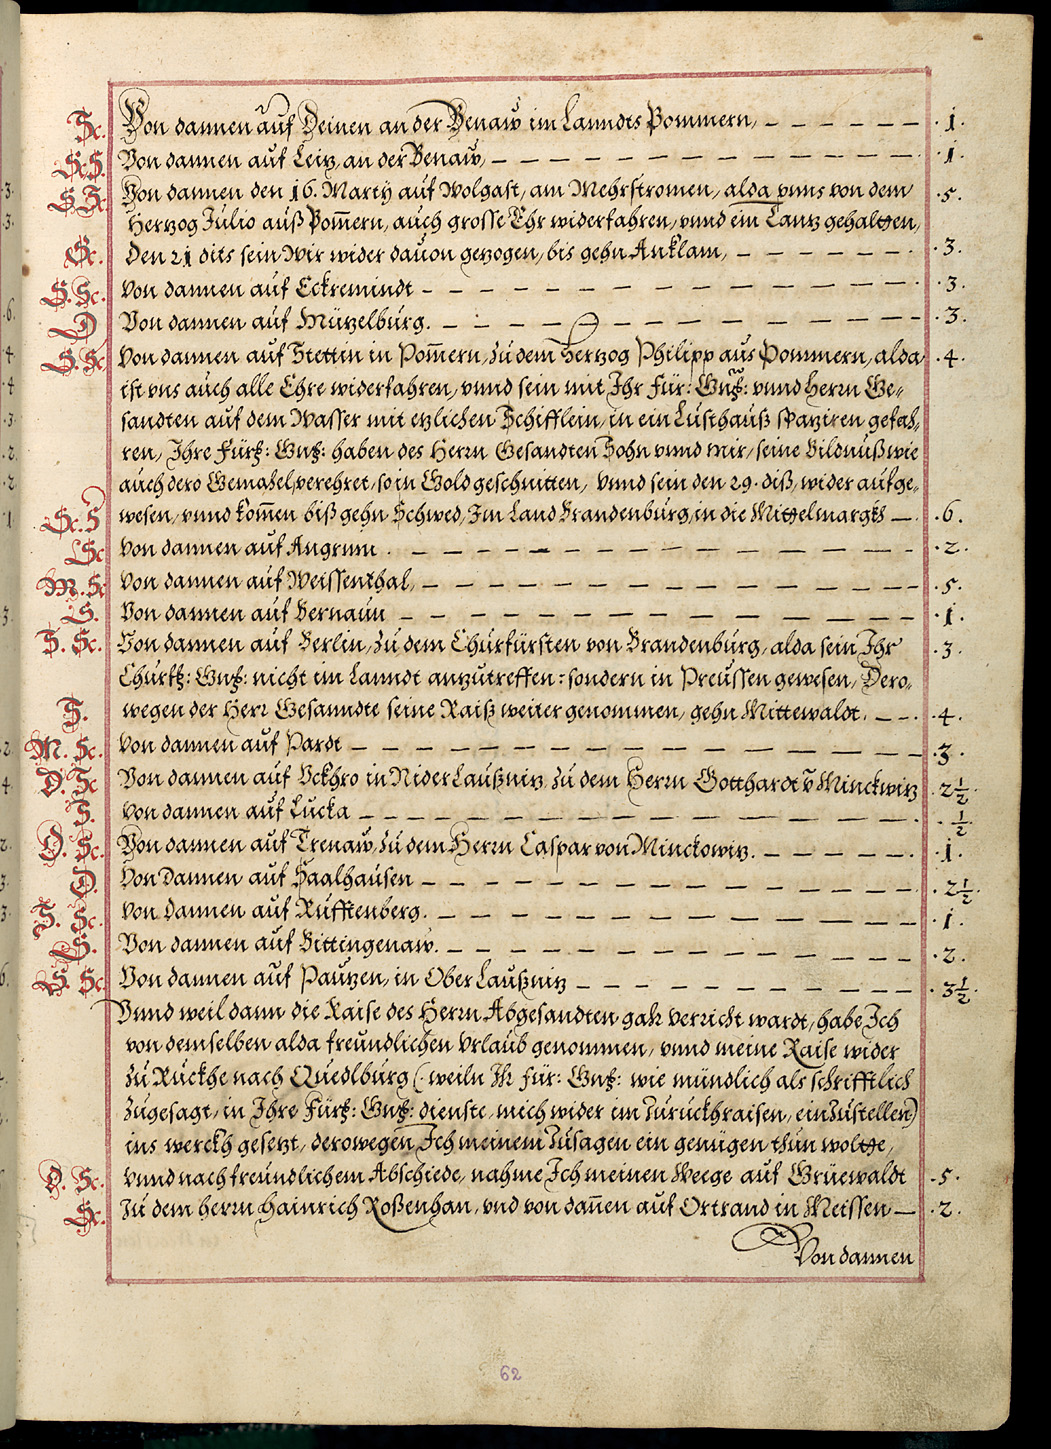 Sc. Von dannen auf Deinen an der Benaw im Lanndts Pommern, – – – – – – .1.
S.S. Von dannen auf Leitz, an der Benaw, – – – – – – – – – – .1.
S.K. Von dannen den 16. Marty auf Wolgast, am Mehrstromen, alda vnns von dem .5.
Hertzog Julio auß Pom̄ern, auch grosse Ehr widerfahren, vnnd ein Tantz gehaltten,
Sc. Den 21 dits sein Wir wider dauon gezogen, bis gehn Anklam, – – – – – – .3.
S. Sc. Von dannen auf Eckremindt – – – – – – – – – – – – .3.
D Von dannen auf Mützelburg. – – – – – – – – – – – .3.
S. K. Von dannen auf Stettin in Pom̄ern, Zu dem Hertzog Philipp aus Pommern, alda .4.
ist vns auch alle Ehre widerfahren, vnnd sein mit Ihr Für: Gnß: vnnd Herrn Ge=
sandten auf dem Wasser mit etzlichen Schifflein, in ein Lusthauß spatziren gefah=
ren, Ihre Fürß: Gnß: haben des Herrn Gesandten Sohn vnnd mir, seine Bildnuß wie
auch dero Gemahel, verehret, so in Gold geschnitten, Vnnd sein den 29. diß, wider aufge=
Sc. S wesen, vnnd kom̄en biß gehn Schwed, Im Land Brandenburg, in die Mittelmargkh – .6.
Sc Von dannen auf Angrum . – – – – – – – – – – – – .2.
M. K Von dannen auf Weissenthal, – – – – – – – – – – – .5.
S. Von dannen auf Bernaun – – – – – – – – – – – .1.
S. Sc. Von dannen auf Berlin, Zu dem Churfürsten von Brandenburg, alda sein Ihr .3.
Churfß: Gnß: nicht im Lanndt anzutreffen: sondern in Preussen gewesen, Dero=
S. wegen der Herr Gesanndte seine Raiß weiter genommen, gehn Mittewaldt. – – . .4.
M. Sc. Von dannen auf Pardt – – – – – – – – – – – – – – .3.
D. Sc Von dannen auf Vckhro in Nider Laußnitz, Zu dem Herrn Gotthardt v̄ Minckwitz .2½.
S. Von dannen auf Lucka – – – – – – – – – – – – – – . ½.
D. Sc. Von dannen auf Trenaw, Zu dem Herrn Caspar von Minckowitz. – – – – – . .1.
D. Von Dannen auf Saalhausen – – – – – – – – – – – – .2½.
S. Sc. Von Dannen auf Rufftenberg. – – – – – – – – – – – – .1.
S. Von dannen auf Bittingenaw. – – – – – – – – – – – – .2.
S. Sc. Von dannen auf Pautzen, in Ober Laußnitz – – – – – – – – – .3½.
Vnnd weil dann die Raise des Herrn Abgesandten gahr verricht wardt, habe Ich
von demselben alda freundlichen Vrlaub genommen, vnnd meine Raise wider
Zu Ruckhe nach Quedlburg (: weiln Ihr Für: Gnß: wie mündlich als schrifftlich
Zugesagt, in Ihre Fürß: Gnß: dienste, mich wider im Zuruckhraisen, ein Zustellen)
ins werckh gesetzt, derowegen Ich meinem Zusagen ein genügen thun woltte,
D. Sc. vnnd nach freundlichem Abschiede, nahme Ich meinen Weege auf Grüewaldt .5.
Sc. Zu dem herrn Hainrich Roßenhan, vnd von dan̄en auf Ortrand in Meissen – .2.
Von dannen
62